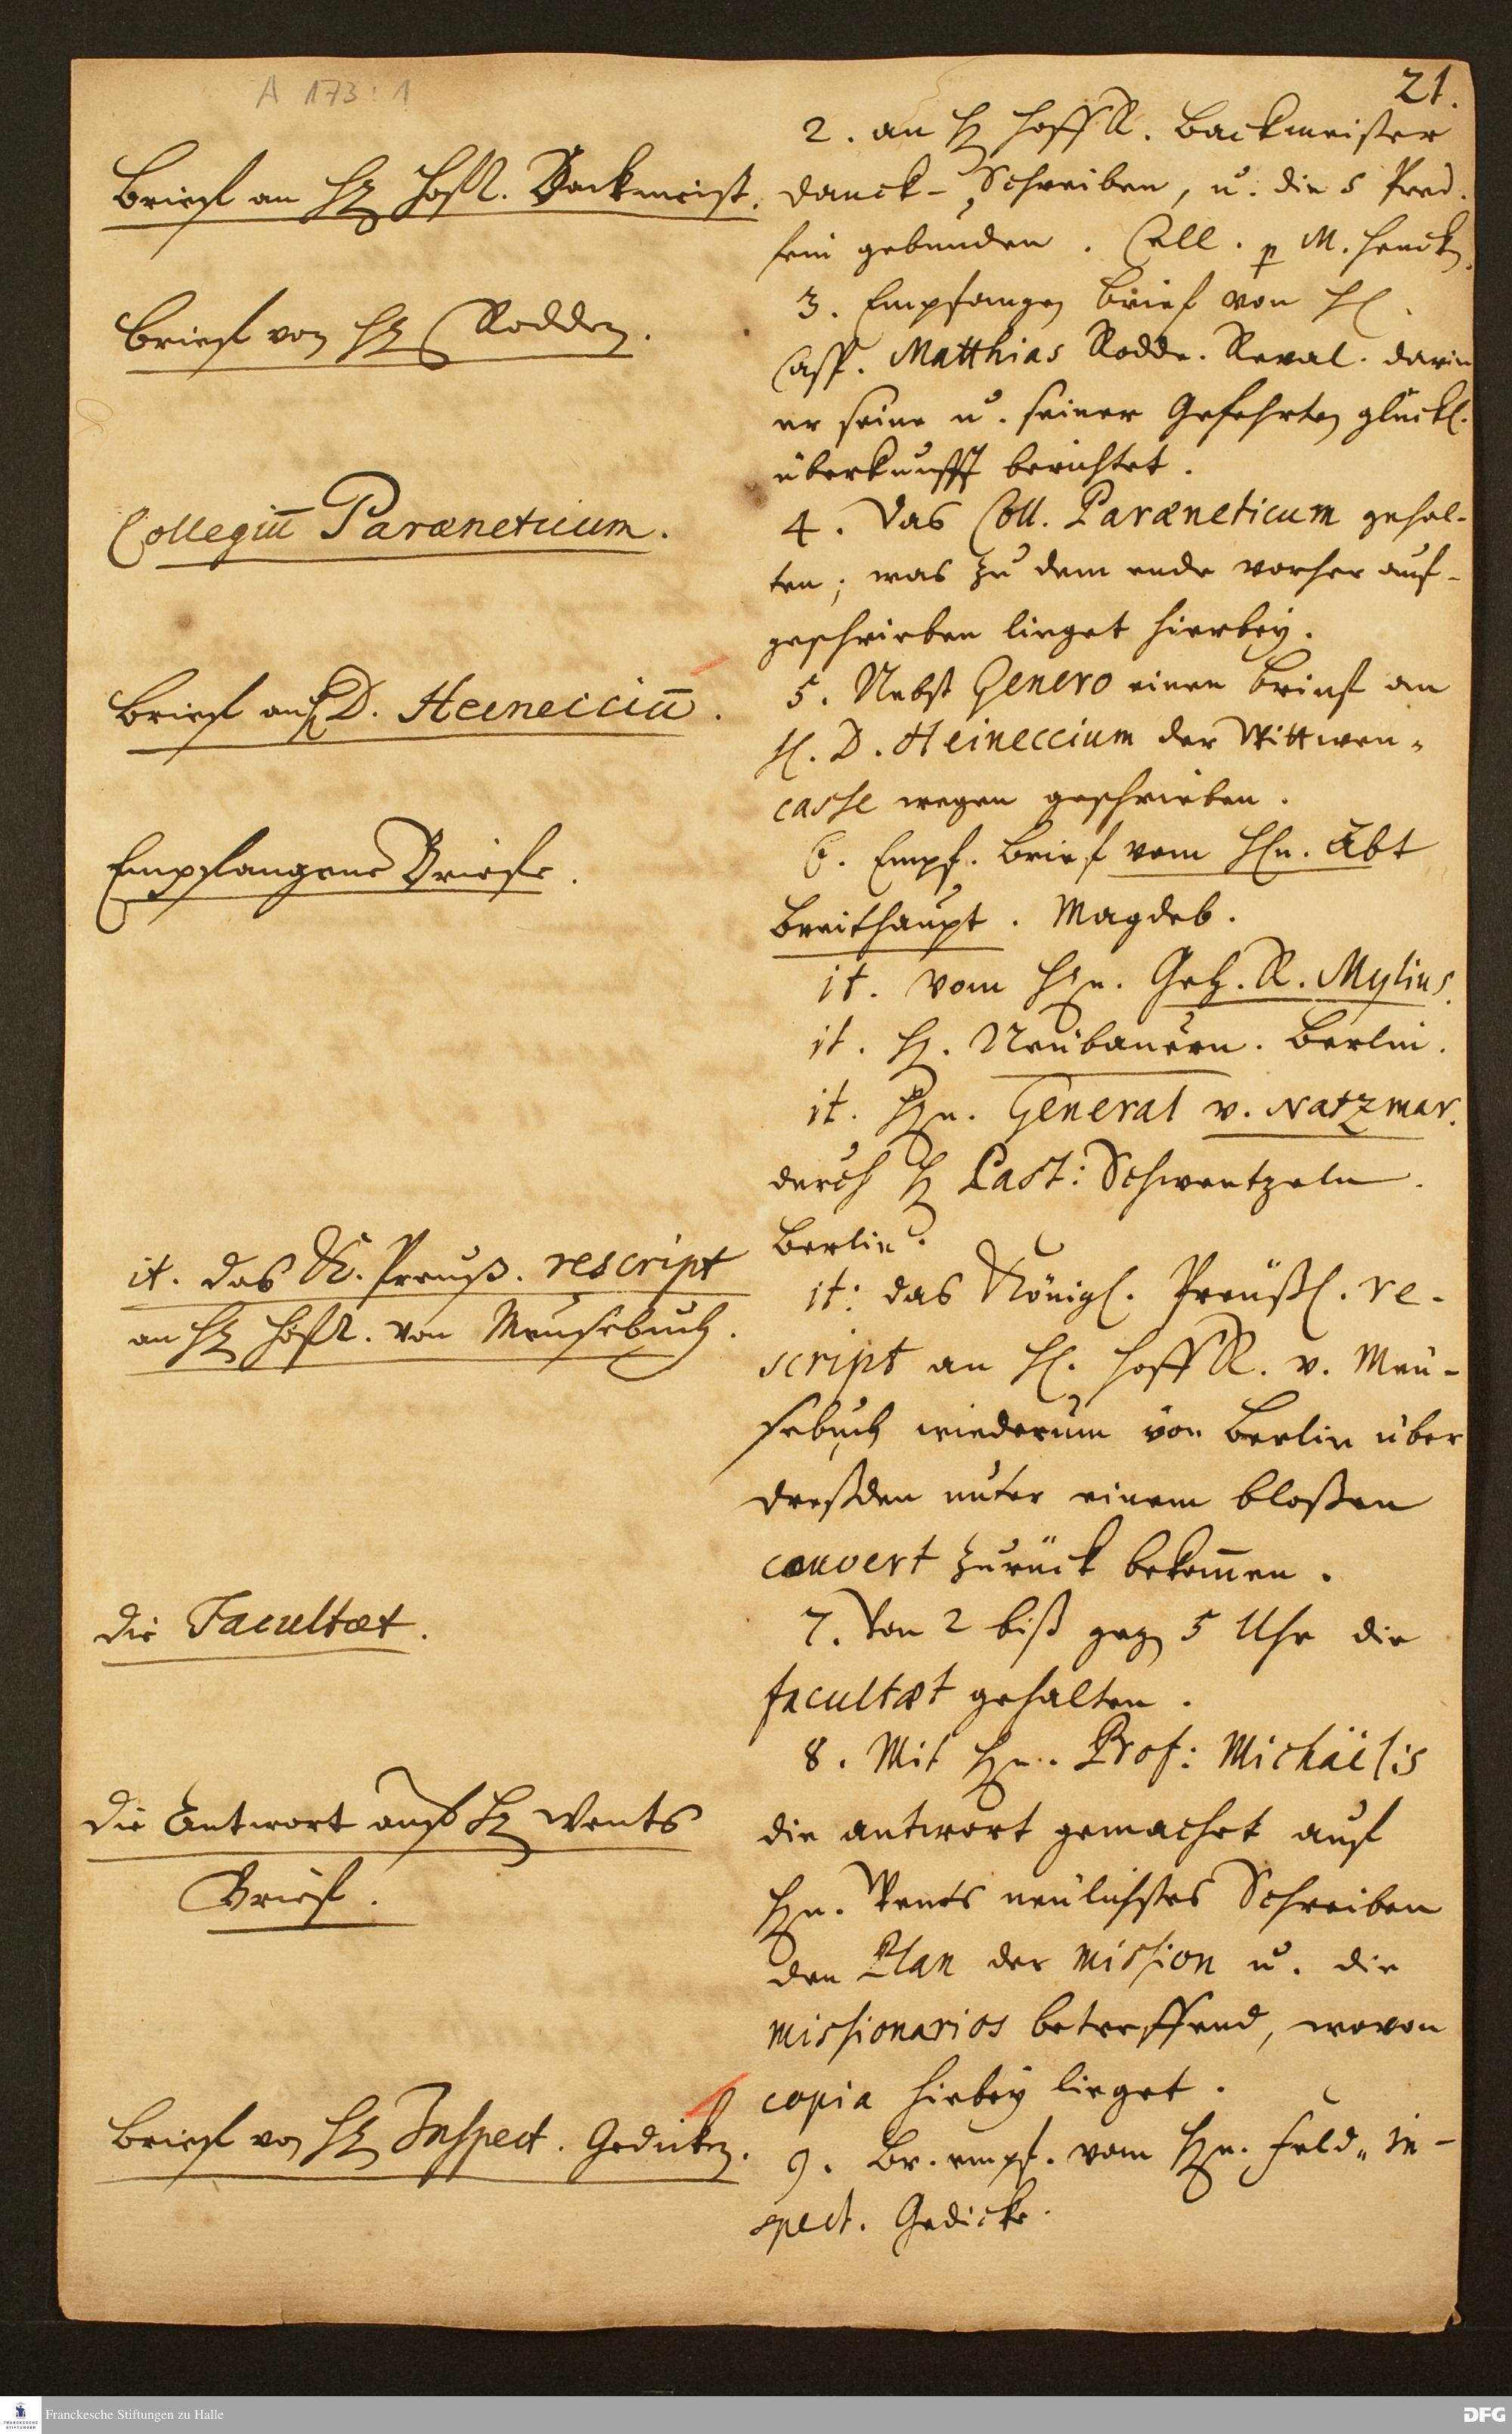 A 173:1
21.
Brief an H. HofR. Backmeist.
Brief von H. Rodden.
Collegiū Paræneticum.
Brief an H. D. Heinecciū.
Empfangene Briefe.
it. das K. Preuß. rescript
an H. HofR. von Meusebuch.
die Facultæt.
die Antwort auf H. Wents
Brief.
Brief von H. Inspect. Gedicken.
2. an H. HoffR. Backmeister
danck-Schreiben, u. die 5 Pred.
fein gebunden. Cell. p M. Henck.
3. Empfangen brief von H.
Casp. Matthias Rodde. Reval. darin
er seine u. seiner Gefehrten glückl.
überkunfft berichtet.
4. Das Coll. Paræneticum gehal-
ten; was zu dem ende vorher auf-
geschrieben lieget hierbey.
5. Nebst Genero einen brief an
H. D. Heineccium der Wittwen-
casse wegen geschrieben.
6. Empf. brief vom Hn. Abt
Breithaupt. Magdeb.
it. vom Hrn. Geh. R. Mylius.
it. H. Neubauern. Berlin.
it. Hrn. General v. Natzmar.
durch H. Past: Schwentzeln.
Berlin.
it: das Königl. Preußl. re-
script an H. HoffR. v. Meu-
sebuch wiederum von Berlin über
Dreßden unter einem bloßen
couvert zurück bekom̄en.
7. Von 2 biß gegen 5 Uhr die
facultæt gehalten.
8. Mit Hrn. Prof: Michäelis
die antwort gemachet auf
Hrn. Wents neulichstes Schreiben
den Plan der mission u. die
missionarios betreffend, wovon
copia hiebey lieget.
9. Br. empf. vom Hrn. Feld-in-
spect. Gedicke.
Franckesche Stiftungen zu Halle
FRANCKESCHE
STIFTUNGEN
DFG